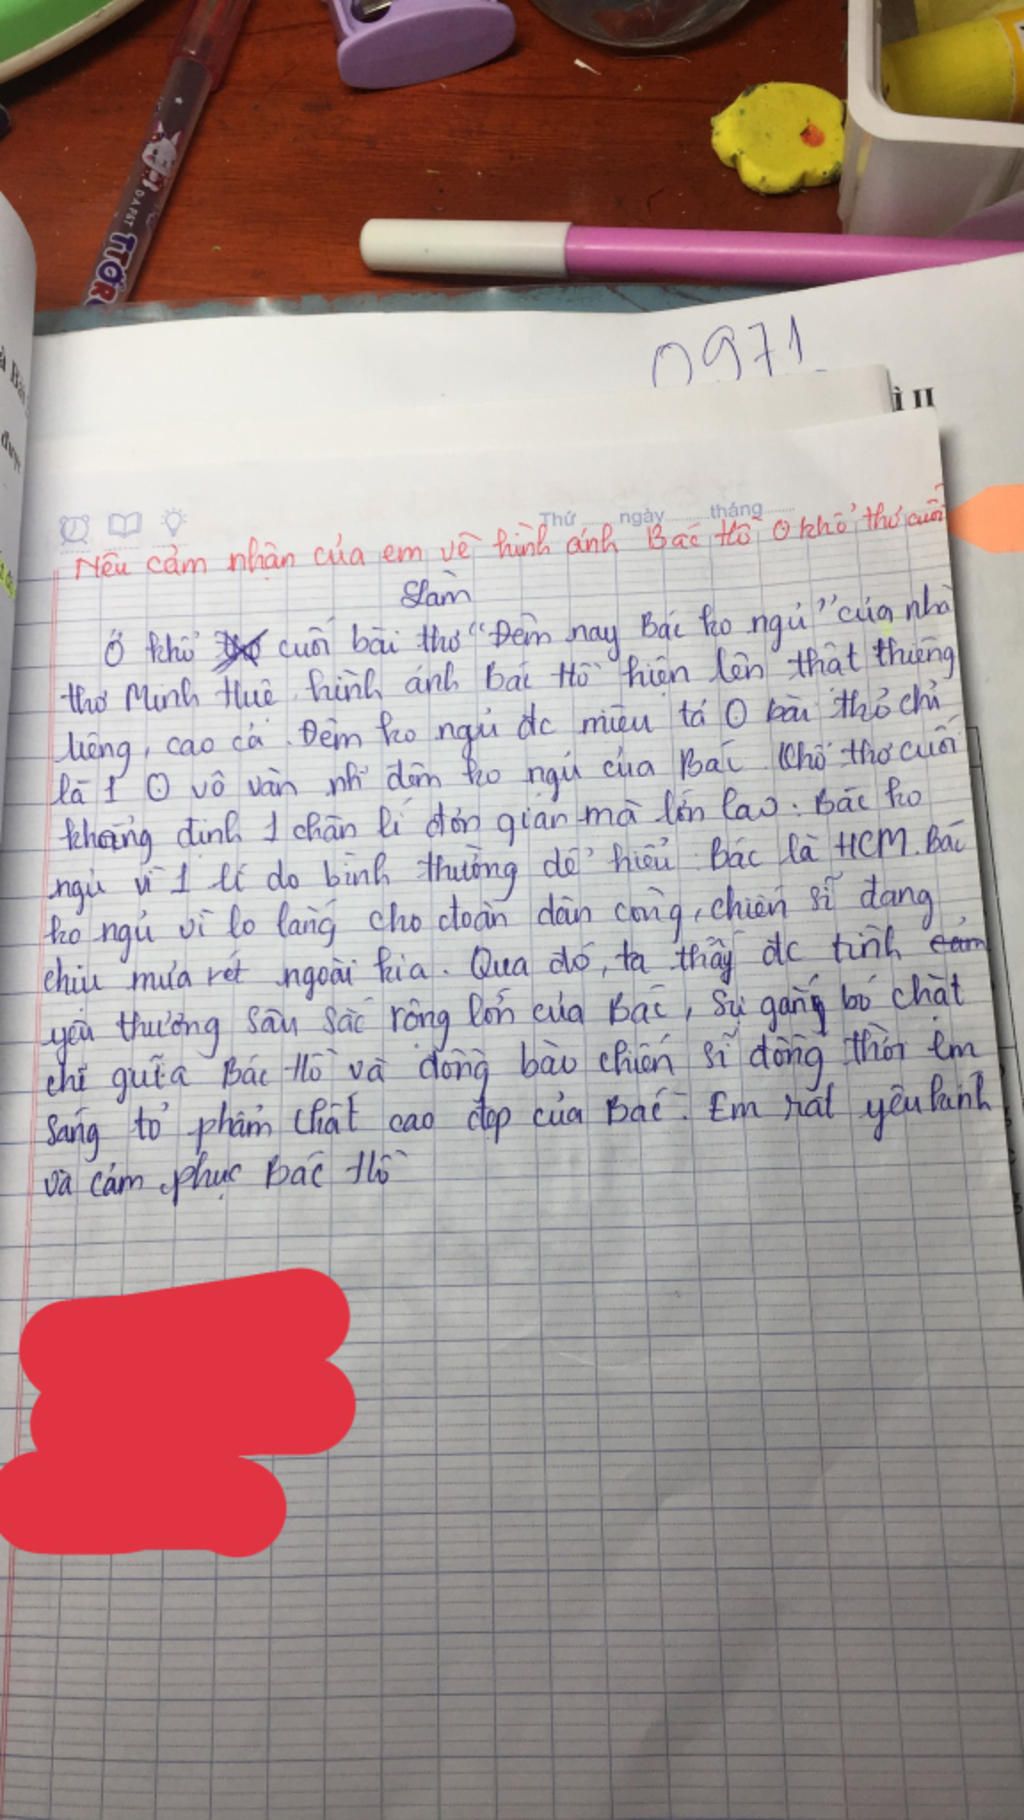 DAFST
TITỚP
0971
ì II
à Bác
được
Thứ ngày tháng
Nêu cảm nhận của em về hình ảnh Bác Hồ O khổ thơ cuối
Làm
Ở khổ cuối bài thơ "Đêm nay Bác ko ngủ" của nhà
thơ Minh Huệ, hình ảnh Bác Hồ hiện lên thật thiêng
liêng, cao cả. Đêm ko ngủ đc miêu tả O bài thơ chỉ
là 1 O vô vàn nh đêm ko ngủ của Bác. Khổ thơ cuối
khẳng định 1 chân lí đơn giản mà lớn lao: Bác ko
ngủ vì 1 lí do bình thường dễ hiểu: Bác là HCM. Bác
ko ngủ vì lo lắng cho đoàn dân công, chiến sĩ đang
chịu mưa rét ngoài kia. Qua đó, ta thấy đc tình cảm
yêu thương sâu sắc rộng lớn của Bác, sự gắng bó chặt
chẽ giữa Bác Hồ và đồng bào chiến sĩ đồng thời làm
sáng tỏ phẩm chất cao đẹp của Bác. Em rất yêu kính
và cảm phục Bác Hồ